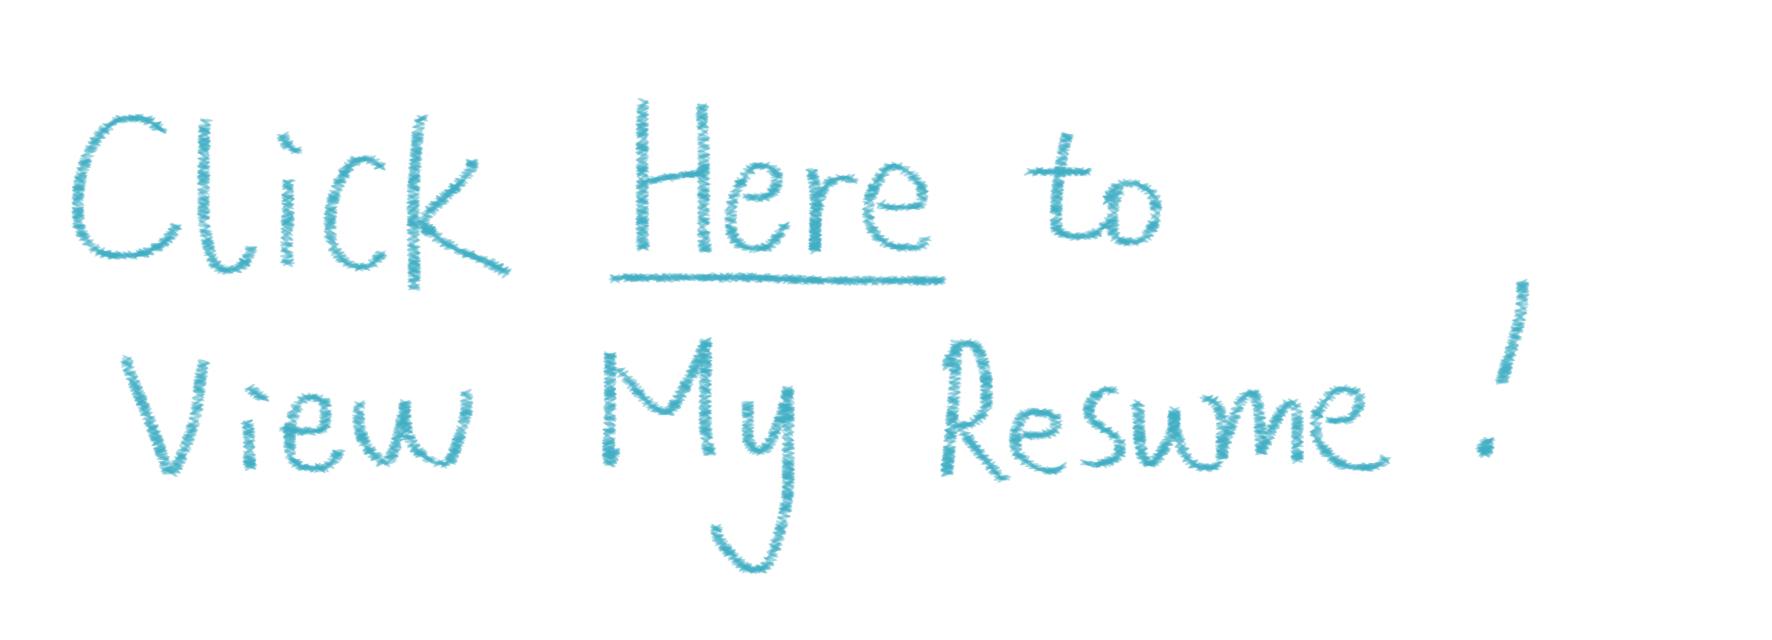 Click Here to
View My Resume!